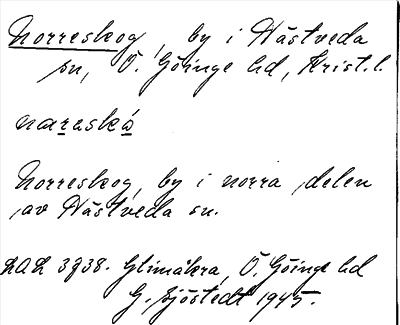 Norreskog, by i Hästveda
sn, Ö. Göinge hd, Krist. l.
nareskå
Norreskog, by i norra delen
av Hästveda sn.
LAL 3938. Glimåkra, Ö. Göinge hd
G. Sjöstedt 1945.